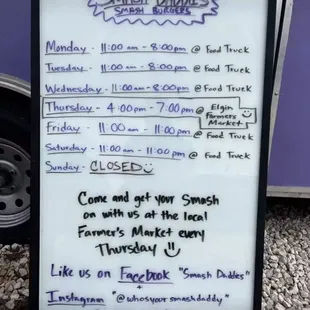 SMASH DADDIES
SMASH BURGERS
Monday - 11:00 am - 8:00 pm @ Food Truck
Tuesday - 11:00 am - 8:00 pm @ Food Truck
Wednesday - 11:00 am - 8:00 pm @ Food Truck
Thursday - 4:00 pm - 7:00 pm @ Elgin Farmers Market
Friday - 11:00 am - 11:00 pm @ Food Truck
Saturday - 11:00 am - 11:00 pm @ Food Truck
Sunday - CLOSED
Come and get your Smash
on with us at the local
Farmer's Market every
Thursday
Like us on Facebook "Smash Daddies"
+
Instagram "@whosyoursmashdaddy"